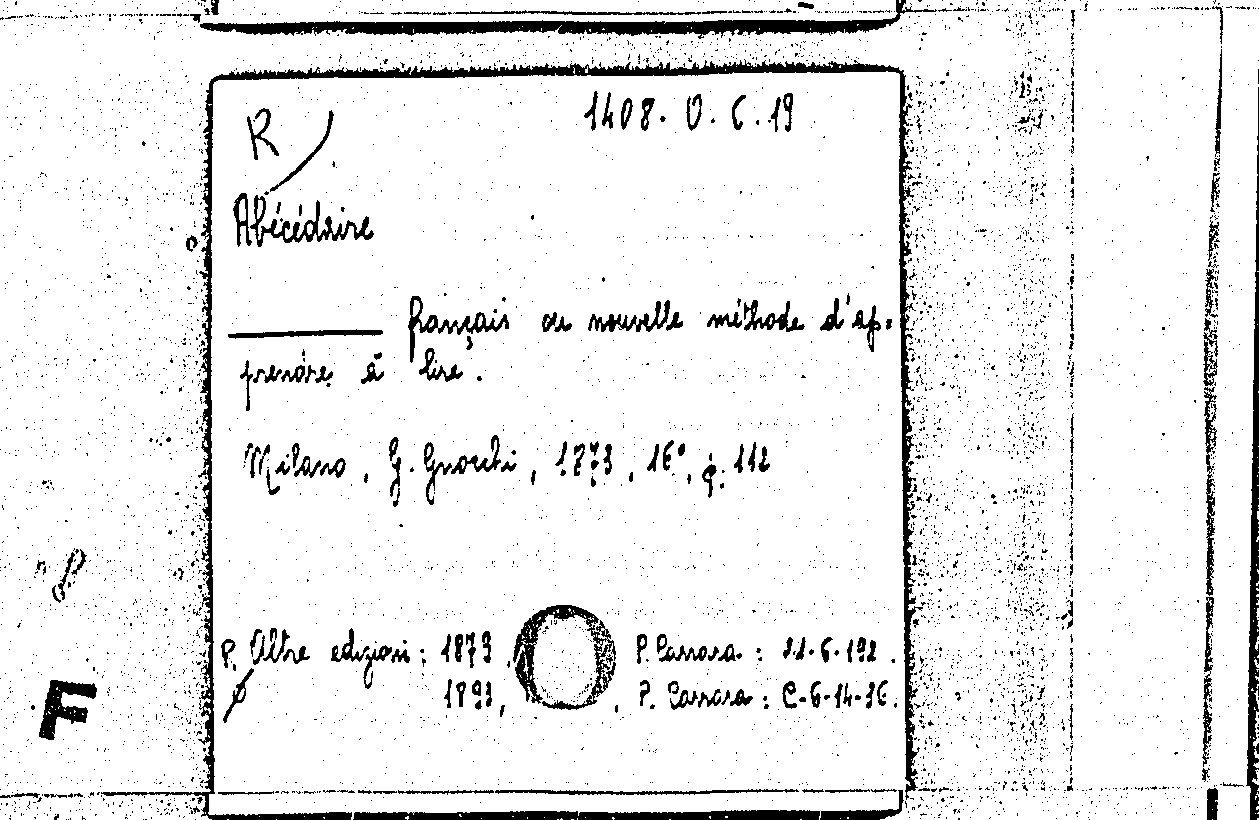 R
1408. O. C. 19
Abécédaire
français ou nouvelle méthode d'ap=
prendre à lire.
Milano, G. Gnocchi, 1873, 16°, p. 112
P. Altre edizioni: 1879, P. Carrara: 21-6-192.
1893, P. Carrara: C-6-14-36.
F